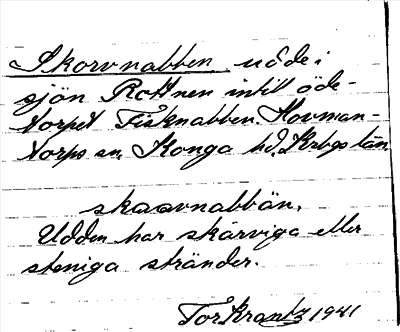 Skorvnabben udde i
sjön Rottnen intill öde-
torpet Fisknabben. Hovman-
torps sn. Konga hd. Krbgs län
skaavnabbän.
Udden har skärviga eller
steniga stränder.
Tor Krantz 1941